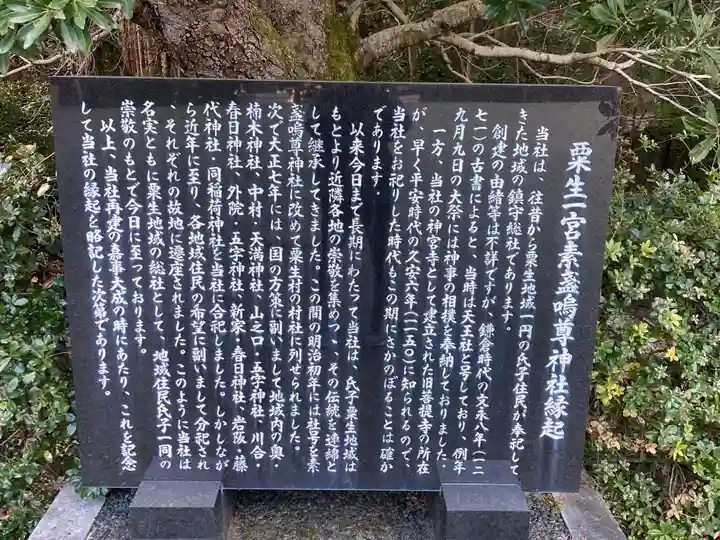 粟生一宮素盞嗚尊神社縁起
当社は、往昔から粟生地域一円の氏子住民が奉祀して
きた地域の鎮守総社であります。
創建の由緒等は不詳ですが、鎌倉時代の文永八年(一二
七一)の古書によると、当時は天王社と号しており、例年
九月九日の大祭には神事の相撲を奉納しておりました。
一方、当社の神宮寺として建立された旧菩提寺の所在
が、早く平安時代の久安六年(一一五〇)に知られるので、
当社をお祀りした時代もこの期にさかのぼることは確か
であります。
以来今日まで長期にわたって当社は、氏子粟生地域は
もとより近隣各地の崇敬を集めつゝ、その伝統を連綿と
して継承してきました。この間の明治初年には社号を素
盞嗚尊神社に改めて粟生村の村社に列せられました。
次で大正七年には、国の方策に副いまして地域内の奥・
楠木神社、中村・天満神社、山之口・五字神社、川合・
春日神社、外院・五字神社、新家・春日神社、岩阪・藤
代神社・同稲荷神社を当社に合祀しました。しかしなが
ら近年に至り、各地域住民の希望に副いまして分祀され
、それぞれの故地に遷座されました。このように当社は
名実ともに粟生地域の総社として、地域住民氏子一同の
崇敬のもとで今日に至っております。
以上、当社再建の嘉事大成の時にあたり、これを記念
して当社の縁起を略記した次第であります。